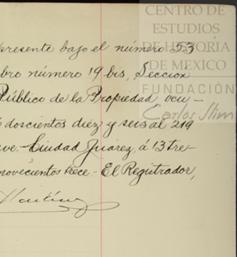 CENTRO DE
ESTUDIOS
DE HISTORIA
DE MEXICO
FUNDACIÓN
Carlos Slim
presente bajo el número 53
bro número 19 bis, Sección
Público de la Propiedad, ocu-
doscientos diez y seis al 219
ve.- Ciudad Juárez, á 13 Tre-
novecientos trece - El Registrador,